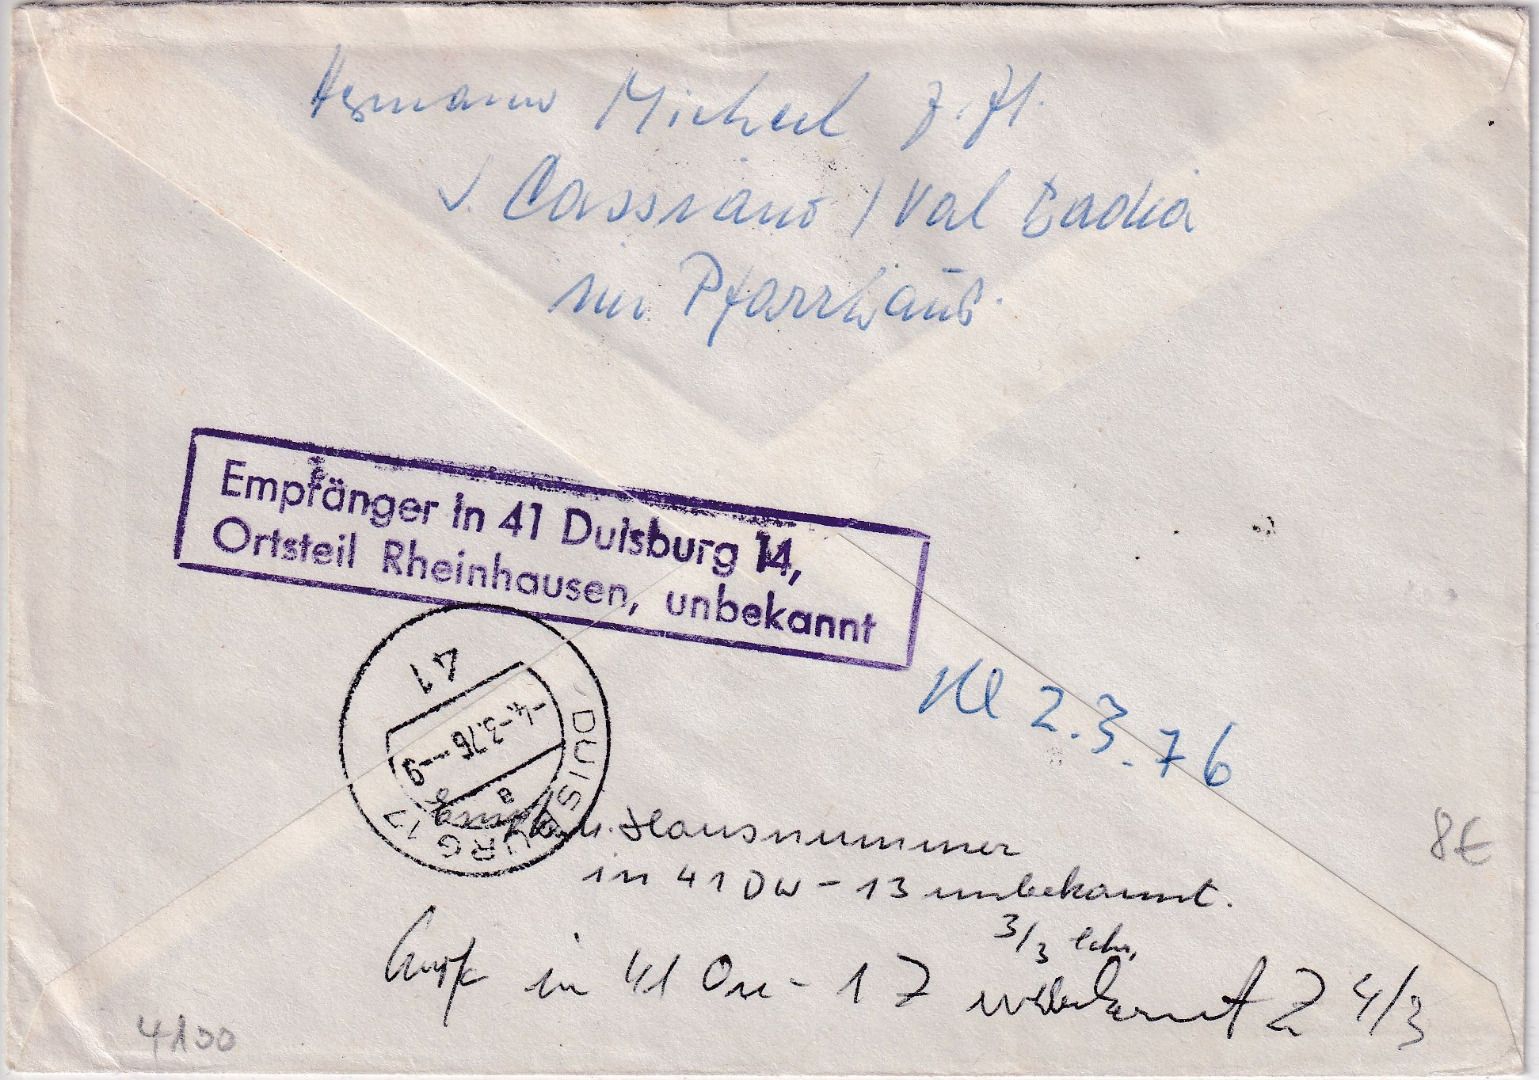 Hermann Michael z. Zt.
S. Cassiano / Val Badia
im Pfarrhaus.
Empfänger in 41 Duisburg 14,
Ortsteil Rheinhausen, unbekannt
41
-4.-3.76--9
a
DUISBURG 17
2.3.76
Empfg u. Hausnummer
in 41 DU - 13 unbekannt.
3/3
in 41 Du - 17 unbekannt Z 4/3
8€
4100